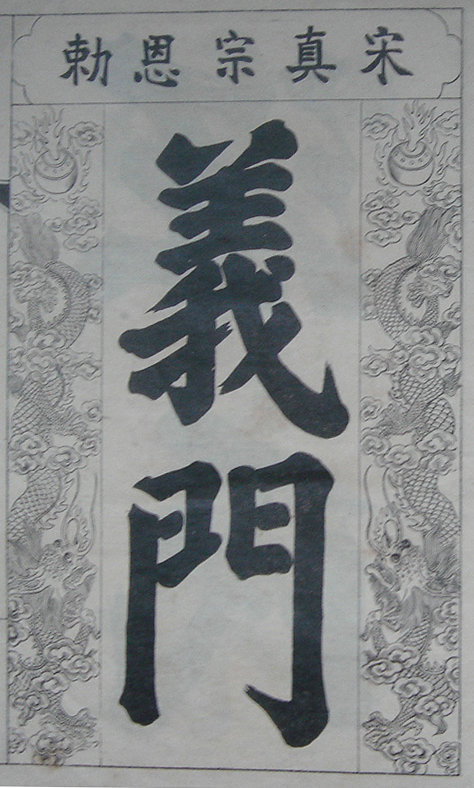 宋真宗恩勅
義門